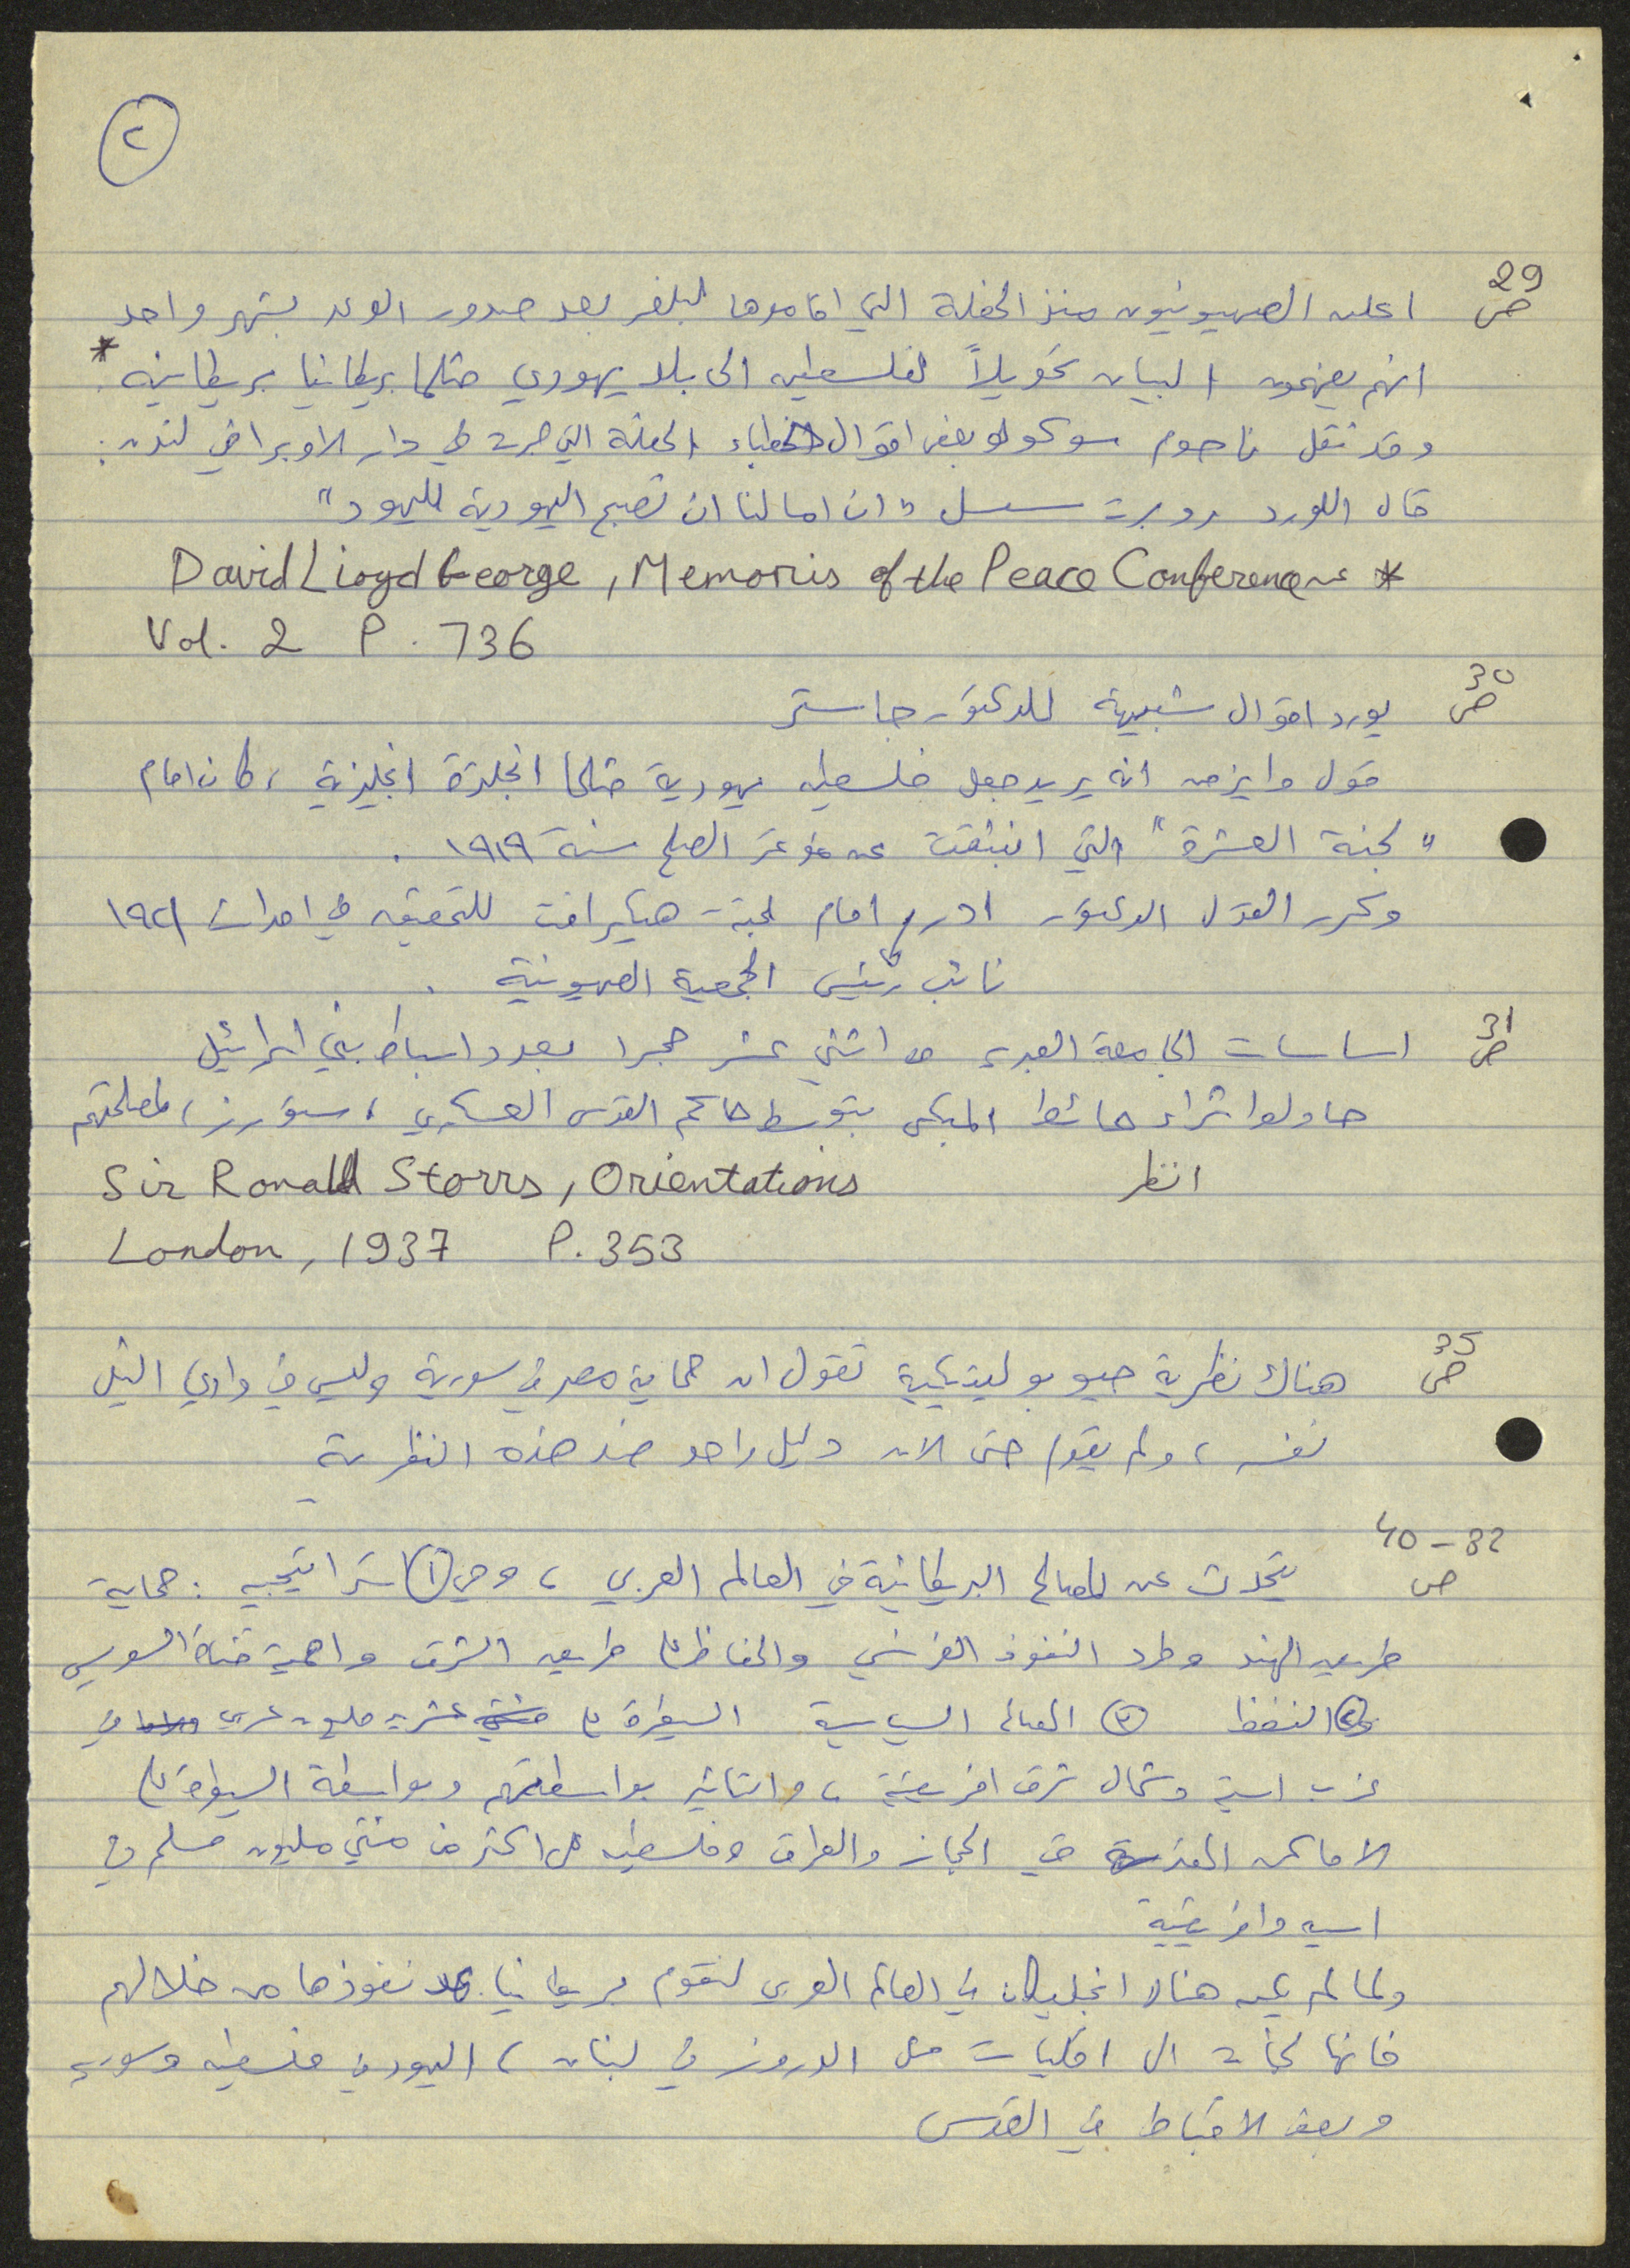 ٢
ص 29 اعلن الصهيونيون منذ الحفلة التي اقاموها لبلفر بعد صدور الوعد بشهر واحد
انهم يفهمون البيان تحويلاً لفلسطين الى بلد يهودي مثلما بريطانيا بريطانية *
وقد نقل ناحوم سوكولو بعض اقوال خطباء الحفلة التي جرت في دار الاوبرا في لندن:
قال اللورد روبرت سسل "ان امالنا ان تصبح اليهودية لليهود"
* David Lioyd George, Memoris of the Peace Conference
Vol. 2 P. 736
ص 30 يورد اقوال شبيهة للدكتور جاستر
قول وايزمن انه يريد جعل فلسطين يهودية مثلما انجلترة انجليزية، كان امام
"لجنة العشرة" التي انبثقت عن مؤتمر الصلح سنة ١٩١٩.
وكرر القول الدكتور ادر امام لجنة هيكرافت للتحقيق في احداث ١٩٢١
نائب رئيس الجمعية الصهيونية.
ص 31 اساسات الجامعة العبرية اثني عشر حجرا بعدد اسباط بني اسرائيل
حاولوا شراء حائط المبكى بتوسط حاكم القدس العسكري، ستورز، لمصلحتهم
انظر Sir Ronald Storrs, Orientations
London, 1937 P. 353
ص 35 هناك نظرية جيوبوليتيكية تقول ان حماية مصر في سورية وليس في وادي النيل
نفسه، ولم يقم حتى الان دليل واحد ضد هذه النظرية
ص 32 - 40 يتحدث عن المصالح البريطانية في العالم العربي، وهي ① استراتيجية: حماية
طريق الهند وطرد النفوذ الفرنسي والحفاظ على طريق الشرق واهمية قناة السويس
② النفط ③ المصالح السياسية السيطرة على عشرين مليون عربي في
غرب اسية وشمال شرق افريقية، والتأثير بواسطتهم وبواسطة السيطرة على
الاماكن المقدسة في الحجاز والعراق وفلسطين على اكثر من مئتي مليون مسلم في
اسيه وافريقية
ولما لم يكن هناك انجليكان في العالم العربي لتقوم بريطانيا نفوذها من خلالهم
فانها لجأت الى اقليات مثل الدروز في لبنان، اليهود في فلسطين وسورية
وبعض الاقباط في القدس